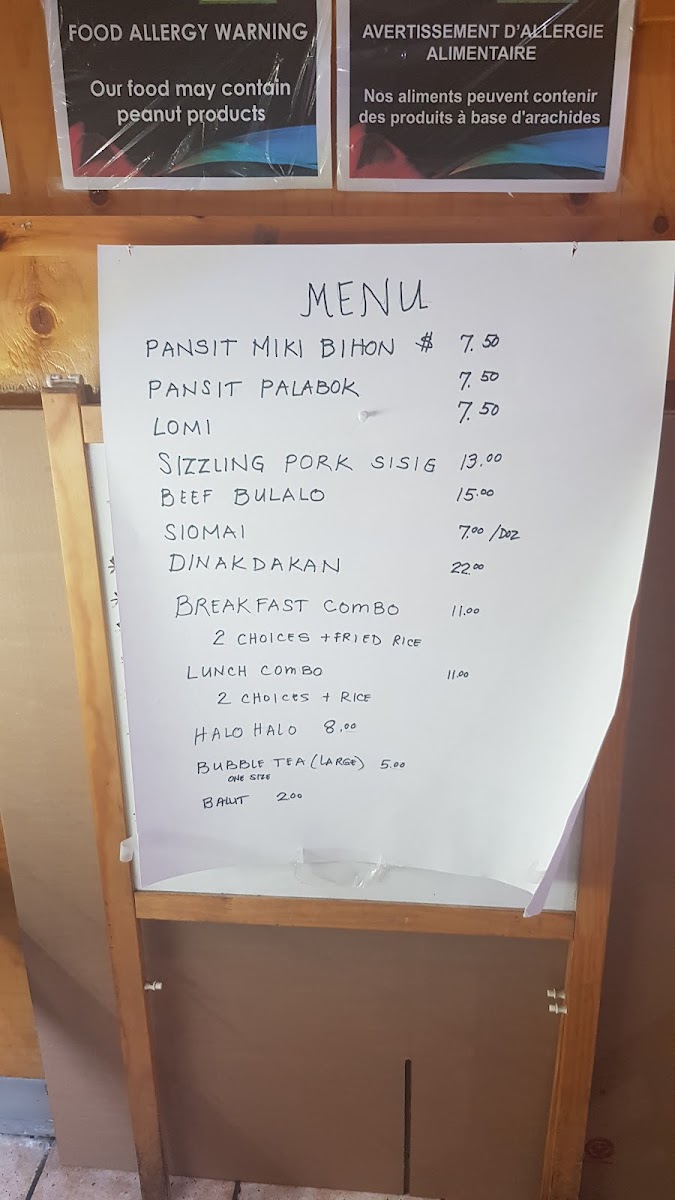 FOOD ALLERGY WARNING
Our food may contain
peanut products
AVERTISSEMENT D'ALLERGIE
ALIMENTAIRE
Nos aliments peuvent contenir
des produits à base d'arachides
MENU
PANSIT MIKI BIHON $ 7.50
PANSIT PALABOK 7.50
LOMI 7.50
SIZZLING PORK SISIG 13.00
BEEF BULALO 15.00
SIOMAI 7.00 /DOZ
DINAKDAKAN 22.00
BREAKFAST COMBO 11.00
2 CHOICES + FRIED RICE
LUNCH COMBO 11.00
2 CHOICES + RICE
HALO HALO 8.00
BUBBLE TEA (LARGE) 5.00
ONE SIZE
BALUT 2.00